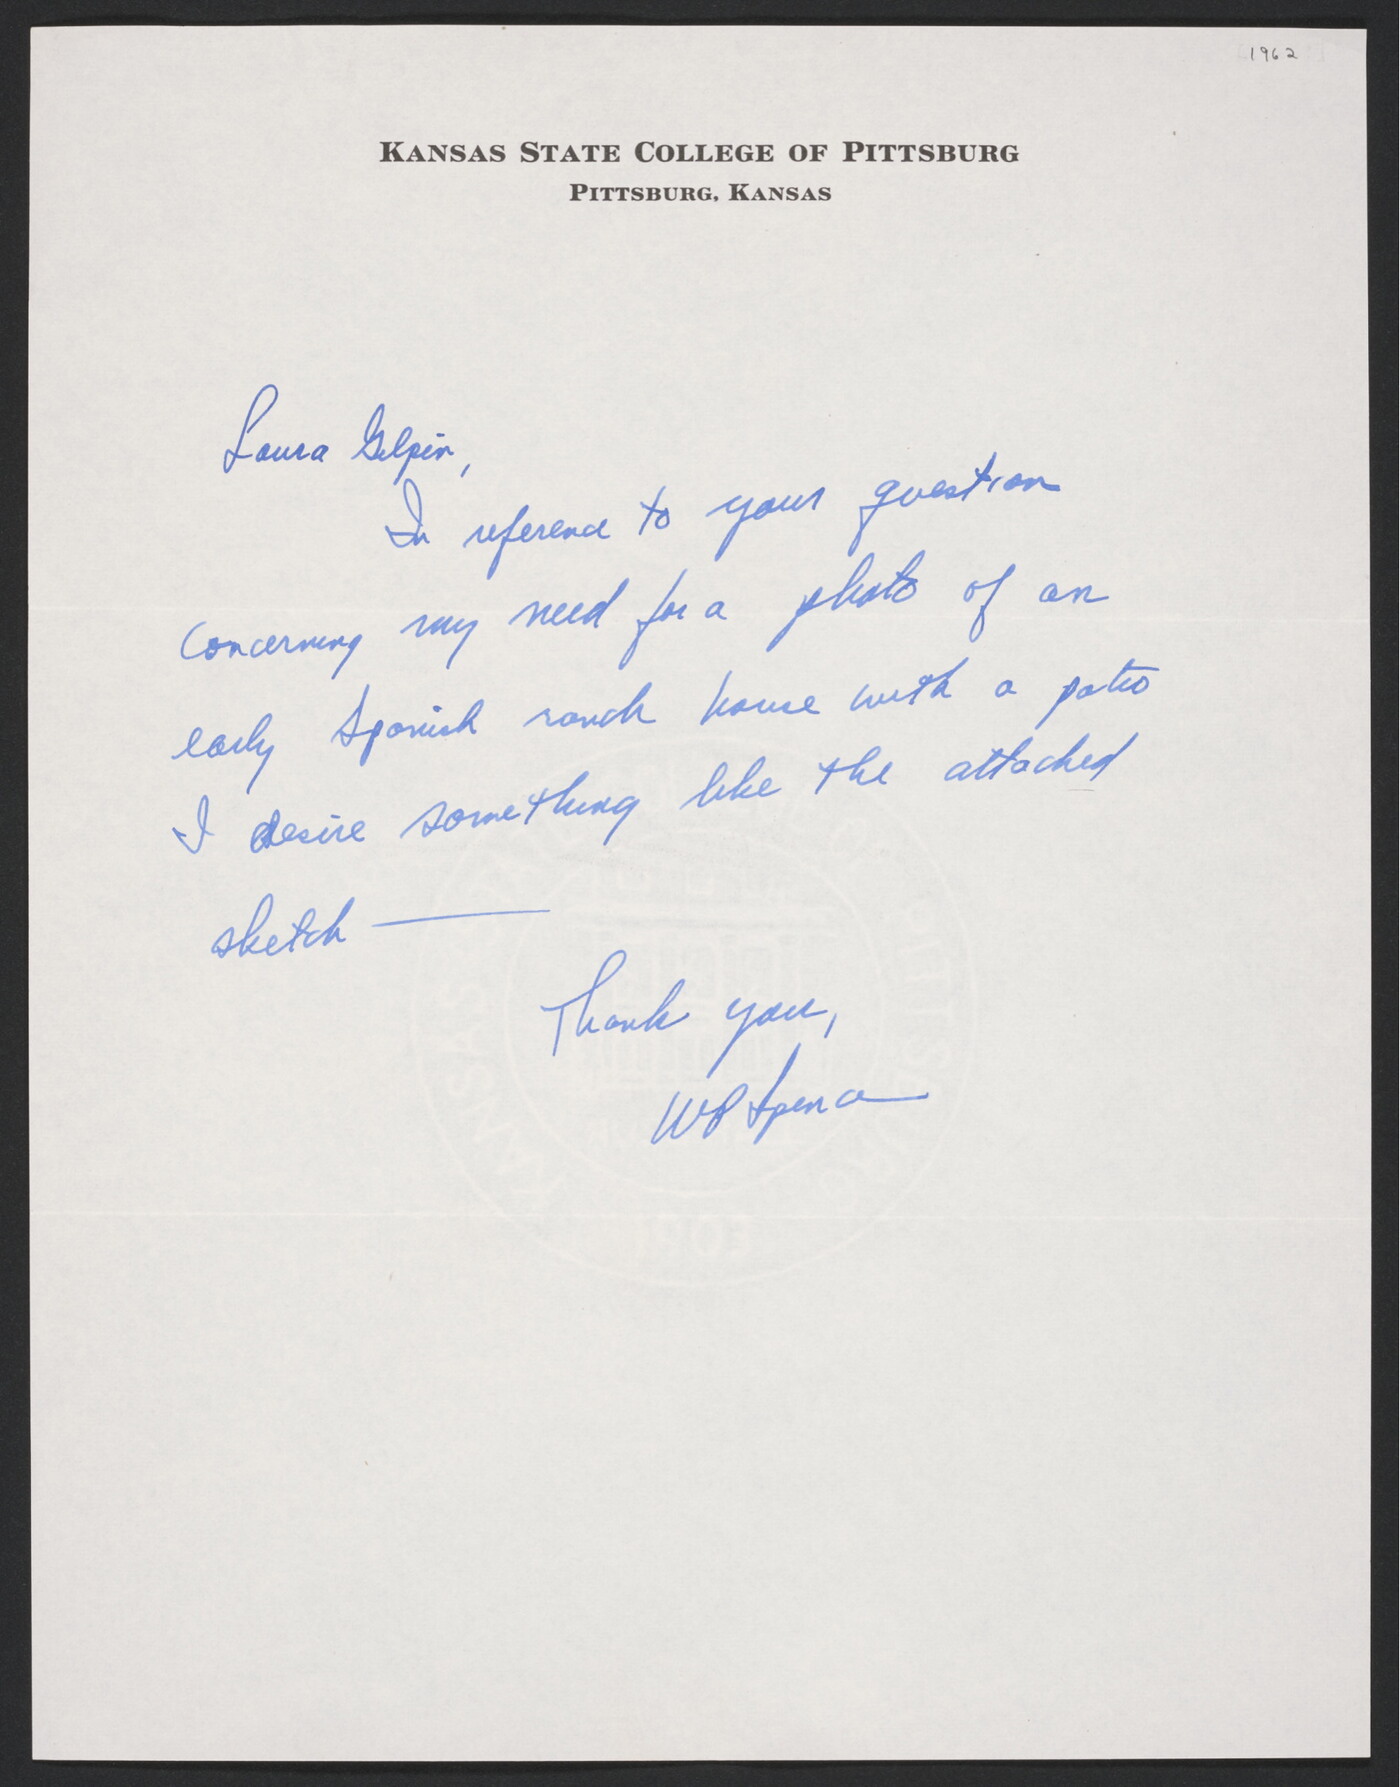 1962
KANSAS STATE COLLEGE OF PITTSBURG
PITTSBURG, KANSAS
Laura Gilpin,
In reference to your question
concerning my need for a photo of an
early Spanish ranch house with a patio
I desire something like the attached
sketch —
Thank you,
WP Spence
KANSAS STATE COLLEGE OF PITTSBURG
1903